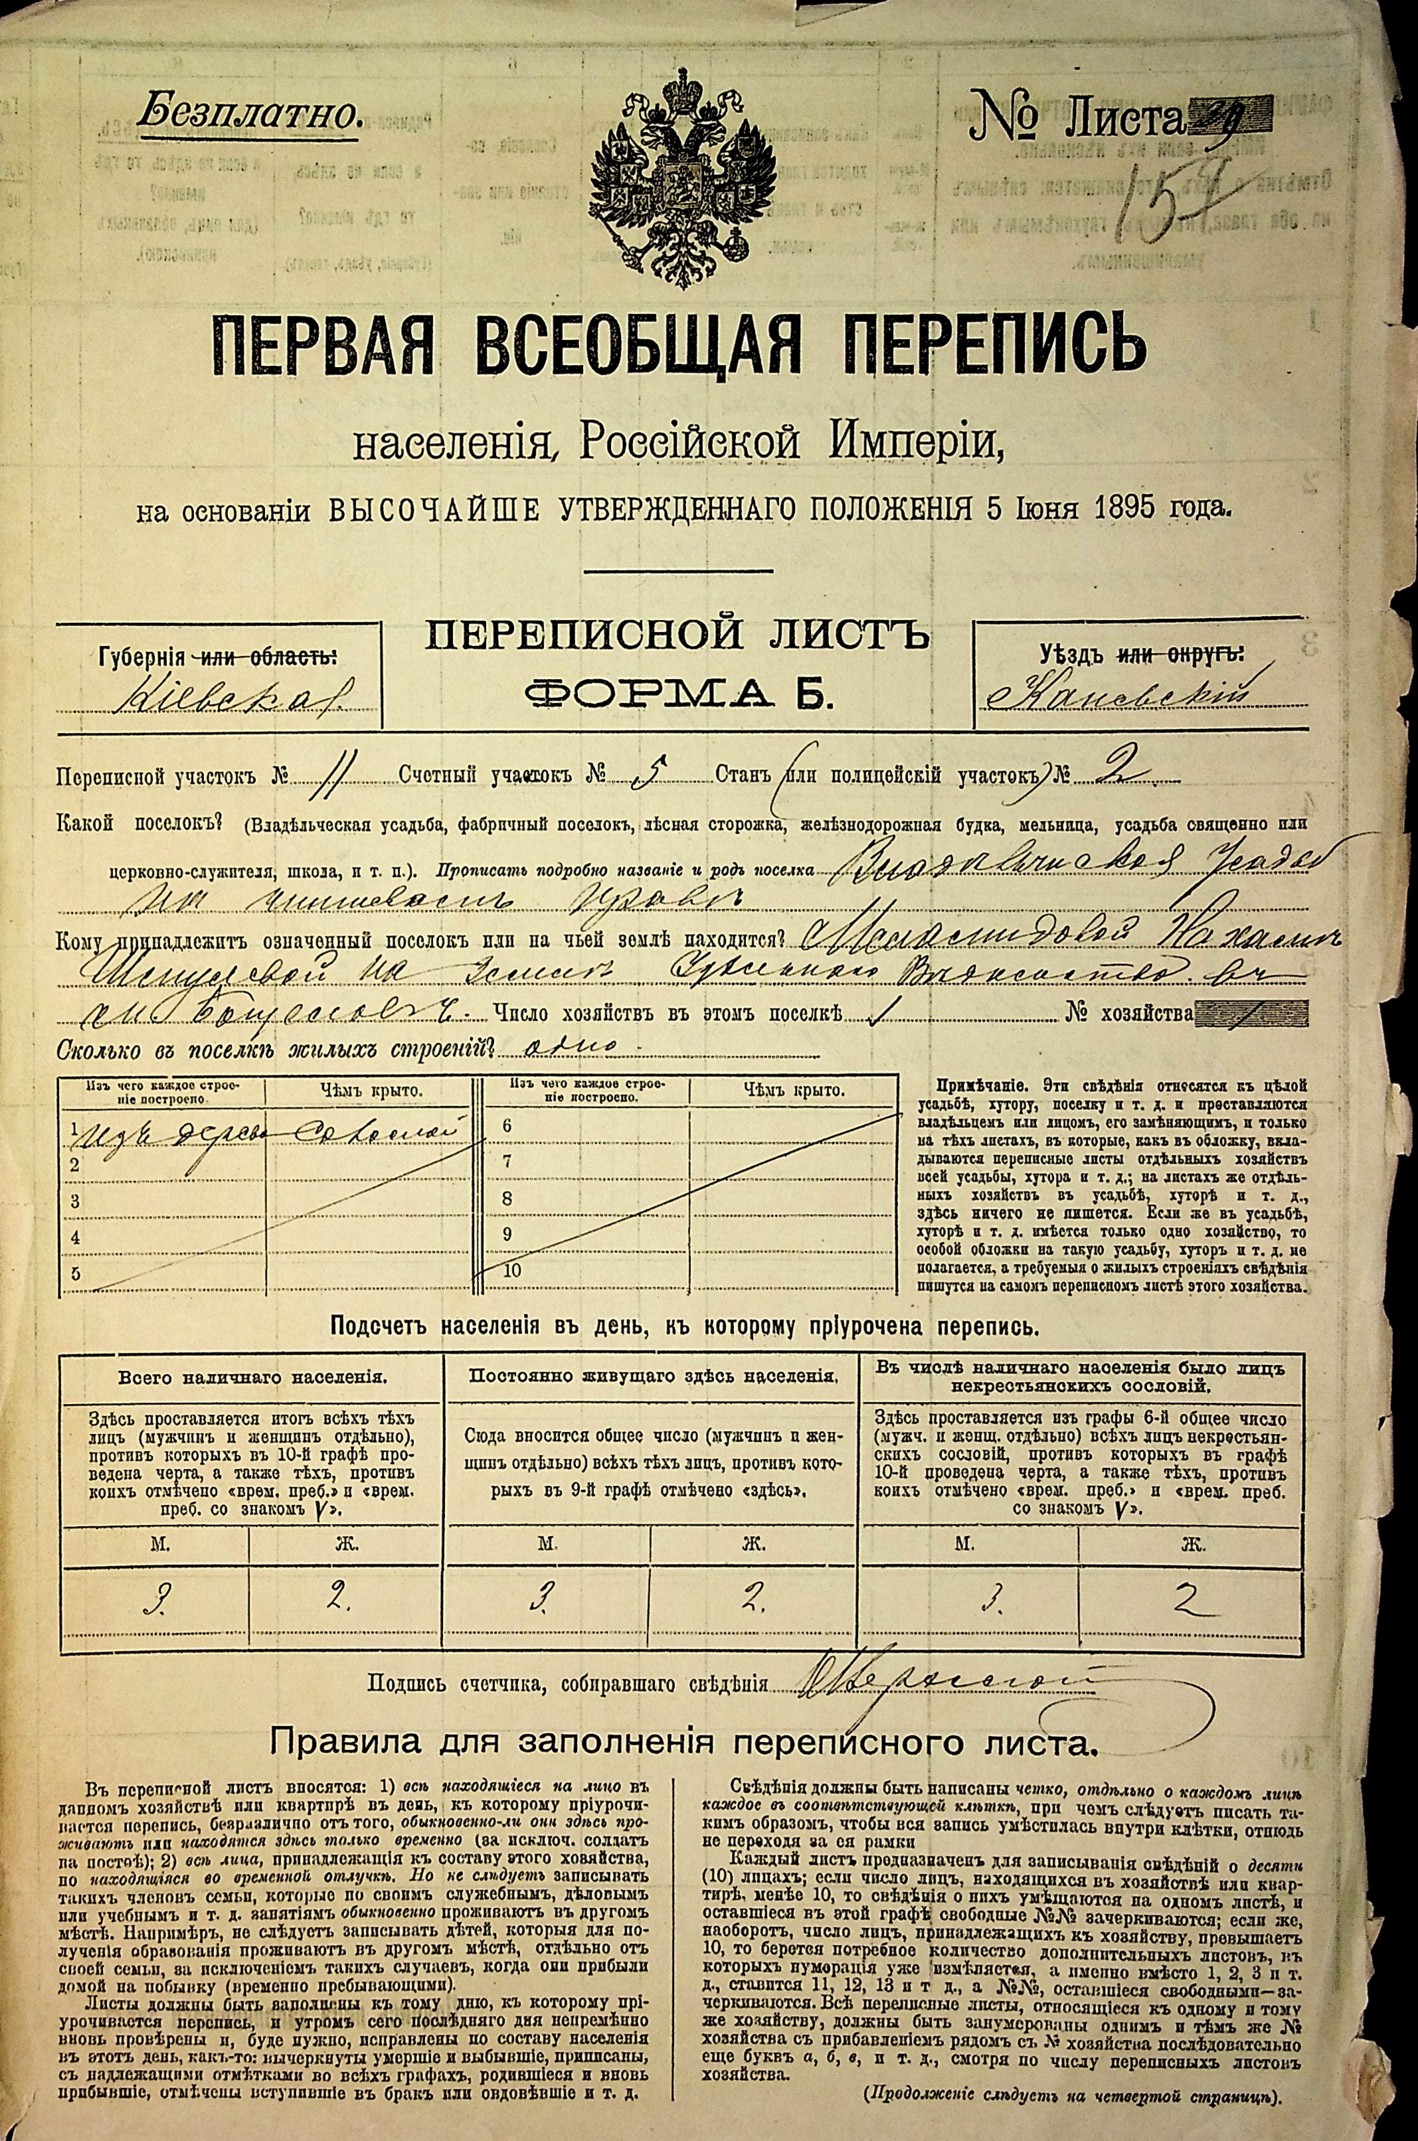 Безплатно.
№ Листа 39
157
ПЕРВАЯ ВСЕОБЩАЯ ПЕРЕПИСЬ
населенія, Россійской Имперіи,
на основаніи ВЫСОЧАЙШЕ УТВЕРЖДЕННАГО ПОЛОЖЕНІЯ 5 Іюня 1895 года.
ПЕРЕПИСНОЙ ЛИСТЪ
ФОРМА Б.
Губернія или область:
Кіевская.
Уѣздъ или округъ:
Каневскій
Переписной участокъ № 11 Счетный участокъ № 5 Станъ (или полицейскій участокъ) № 2.
Какой поселокъ? (Владѣльческая усадьба, фабричный поселокъ, лѣсная сторожка, желѣзнодорожная будка, мельница, усадьба священно или
церковно-служителя, школа, и т. п.). Прописать подробно названіе и родъ поселка
на правѣ
Кому принадлежитъ означенный поселокъ или на чьей землѣ находится?
на земли Удѣльнаго Вѣдомства въ
Число хозяйствъ въ этомъ поселкѣ 1 № хозяйства 1
Сколько въ поселкѣ жилыхъ строеній? одно.
Изъ чего каждое строе-
ніе построено.
Чѣмъ крыто.
Изъ чего каждое строе-
ніе построено.
Чѣмъ крыто.
1 изъ дерева Соломой
2
3
4
5
6
7
8
9
10
Примѣчаніе. Эти свѣдѣнія относятся къ цѣлой
усадьбѣ, хутору, поселку и т. д. и проставляются
владѣльцемъ или лицомъ, его замѣняющимъ, и только
на тѣхъ листахъ, въ которые, какъ въ обложку, вкла-
дываются переписные листы отдѣльныхъ хозяйствъ
всей усадьбы, хутора и т. д.; на листахъ же отдѣль-
ныхъ хозяйствъ въ усадьбѣ, хуторѣ и т. д.,
здѣсь ничего не пишется. Если же въ усадьбѣ,
хуторѣ и т. д. имѣется только одно хозяйство, то
особой обложки на такую усадьбу, хуторъ и т. д. не
полагается, а требуемыя о жилыхъ строеніяхъ свѣдѣнія
пишутся на самомъ переписномъ листѣ этого хозяйства.
Подсчетъ населенія въ день, къ которому пріурочена перепись.
Всего наличнаго населенія.
Здѣсь проставляется итогъ всѣхъ тѣхъ
лицъ (мужчинъ и женщинъ отдѣльно),
противъ которыхъ въ 10-й графѣ про-
ведена черта, а также тѣхъ, противъ
коихъ отмѣчено «врем. преб.» и «врем.
преб. со знакомъ V».
Постоянно живущаго здѣсь населенія.
Сюда вносится общее число (мужчинъ и жен-
щинъ отдѣльно) всѣхъ тѣхъ лицъ, противъ кото-
рыхъ въ 9-й графѣ отмѣчено «здѣсь».
Въ числѣ наличнаго населенія было лицъ
некрестьянскихъ сословій.
Здѣсь проставляется изъ графы 6-й общее число
(мужч. и женщ. отдѣльно) всѣхъ лицъ некрестьян-
скихъ сословій, противъ которыхъ въ графѣ
10-й проведена черта, а также тѣхъ, противъ
коихъ отмѣчено «врем. преб.» и «врем. преб.
со знакомъ V».
М. Ж. М. Ж. М. Ж.
3. 2. 3. 2. 3. 2
Подпись счетчика, собиравшаго свѣдѣнія
Правила для заполненія переписного листа.
Въ переписной листъ вносятся: 1) всѣ находящіеся на лицо въ
данномъ хозяйствѣ или квартирѣ въ день, къ которому пріурочи-
вается перепись, безразлично отъ того, обыкновенно-ли они здѣсь про-
живаютъ или находятся здѣсь только временно (за исключ. солдатъ
на постоѣ); 2) всѣ лица, принадлежащія къ составу этого хозяйства,
но находящіяся во временной отлучкѣ. Но не слѣдуетъ записывать
такихъ членовъ семьи, которые по своимъ служебнымъ, дѣловымъ
или учебнымъ и т. д. занятіямъ обыкновенно проживаютъ въ другомъ
мѣстѣ. Напримѣръ, не слѣдуетъ записывать дѣтей, которыя для по-
лученія образованія проживаютъ въ другомъ мѣстѣ, отдѣльно отъ
своей семьи, за исключеніемъ такихъ случаевъ, когда они прибыли
домой на побывку (временно пребывающими).
Листы должны быть заполнены къ тому дню, къ которому прі-
урочивается перепись, и утромъ сего послѣдняго дня непремѣнно
вновь провѣрены и, буде нужно, исправлены по составу населенія
въ этотъ день, какъ-то: вычеркнуты умершіе и выбывшіе, приписаны,
съ надлежащими отмѣтками во всѣхъ графахъ, родившіеся и вновь
прибывшіе, отмѣчены вступившіе въ бракъ или овдовѣвшіе и т. д.
Свѣдѣнія должны быть написаны четко, отдѣльно о каждомъ лицѣ
каждое въ соотвѣтствующей клѣткѣ, при чемъ слѣдуетъ писать та-
кимъ образомъ, чтобы вся запись умѣстилась внутри клѣтки, отнюдь
не переходя за ея рамки
Каждый листъ предназначенъ для записыванія свѣдѣній о десяти
(10) лицахъ; если число лицъ, находящихся въ хозяйствѣ или квар-
тирѣ, менѣе 10, то свѣдѣнія о нихъ умѣщаются на одномъ листѣ, и
оставшіеся въ этой графѣ свободные №№ зачеркиваются; если же,
наоборотъ, число лицъ, принадлежащихъ къ хозяйству, превышаетъ
10, то берется потребное количество дополнительныхъ листовъ, въ
которыхъ нумерація уже измѣняется, а именно вмѣсто 1, 2, 3 и т.
д., ставится 11, 12, 13 и т д., а №№, оставшіеся свободными—за-
черкиваются. Всѣ переписные листы, относящіеся къ одному и тому
же хозяйству, должны быть занумерованы однимъ и тѣмъ же №
хозяйства съ прибавленіемъ рядомъ съ № хозяйства послѣдовательно
еще буквъ а, б, в, и т. д., смотря по числу переписныхъ листовъ
хозяйства.
(Продолженіе слѣдуетъ на четвертой страницѣ).